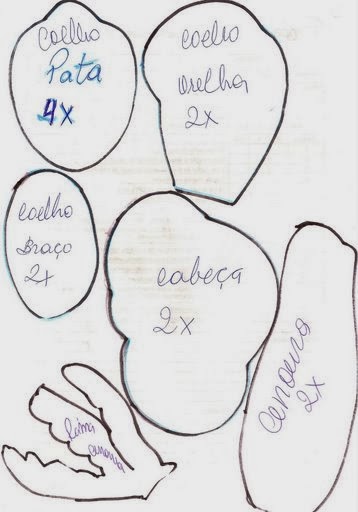 coelho
Pata
4x
coelho
orelha
2x
coelho
Braço
2x
cabeça
2x
cenoura
2x
Rama
cenoura